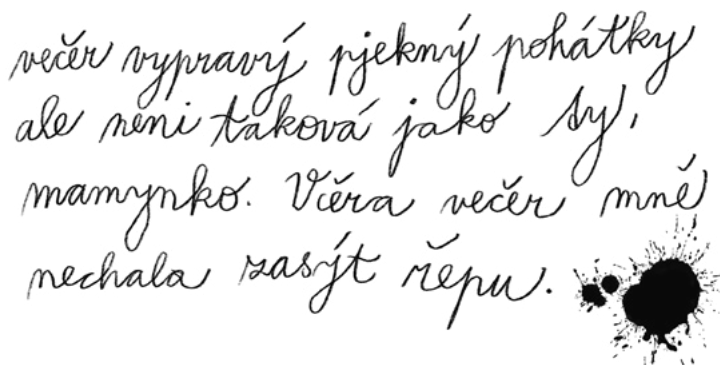 večér vypravý pjekný pohátky
ale neni taková jako ty,
mamynko. Včéra večér mně
nechala zasýt řepu.